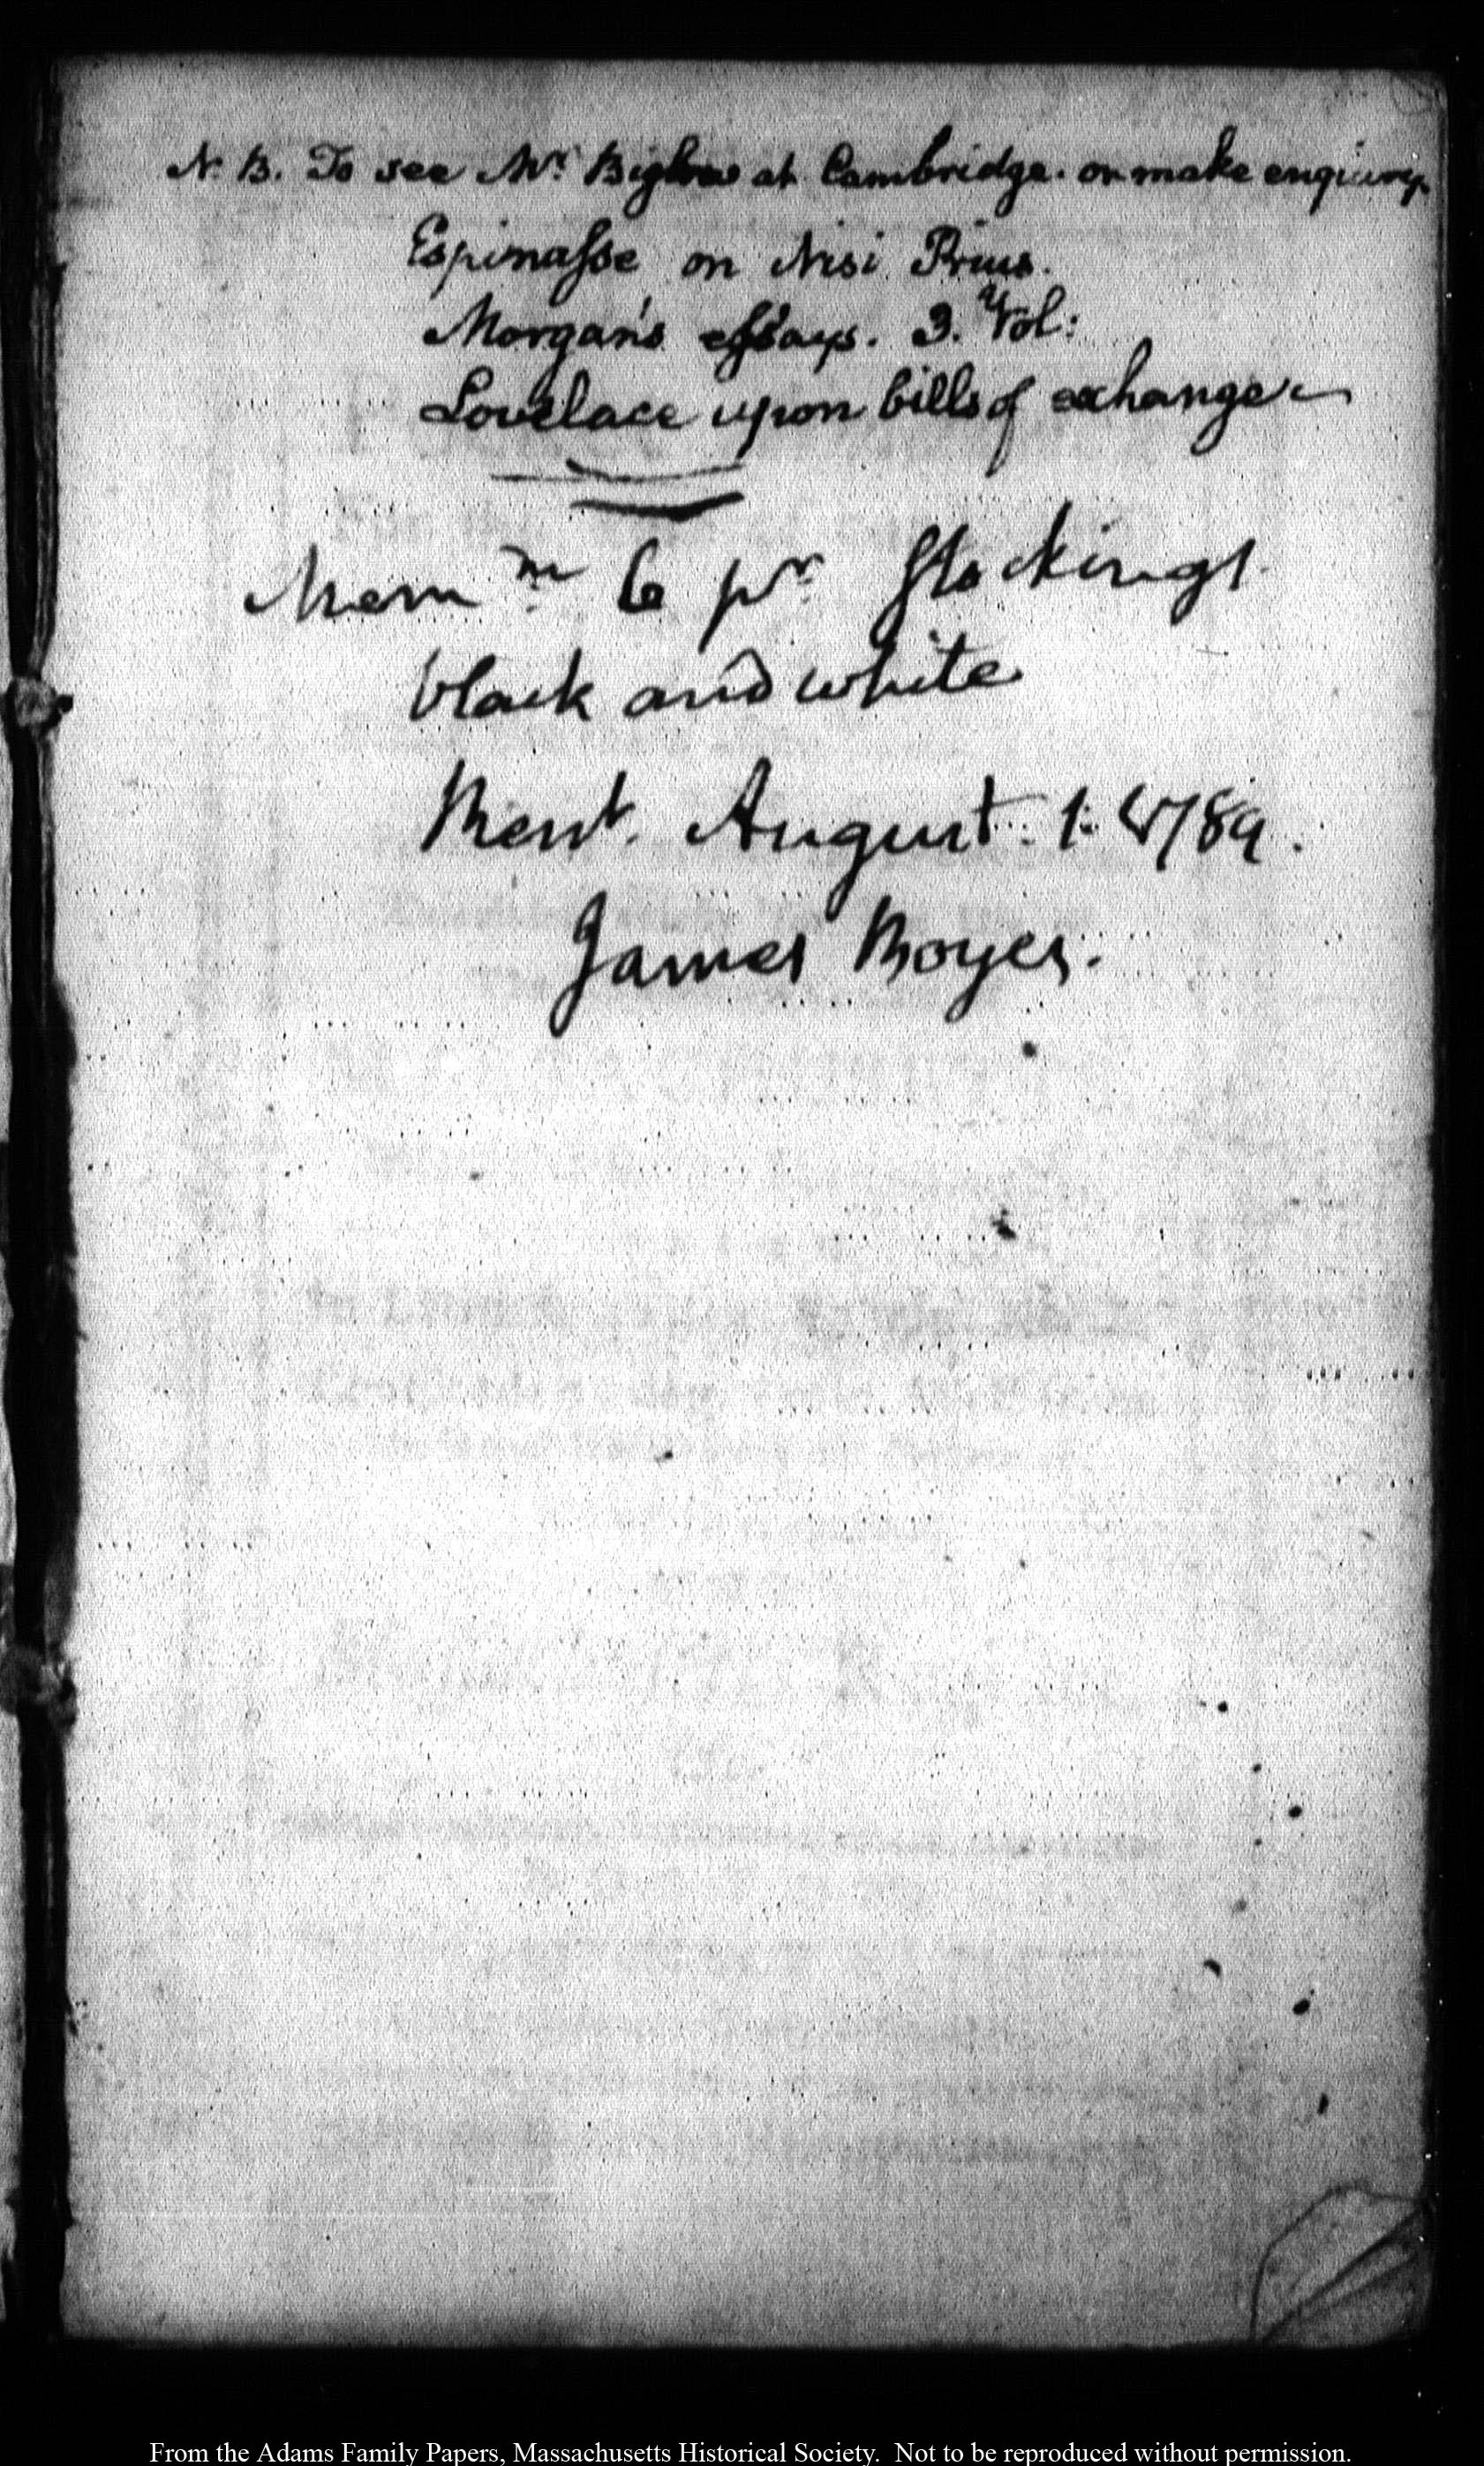 N. B. To see Mr. Biglow at Cambridge. or make enquiry.
Espinasse on Nisi Prius.
Morgan's essays. 3. Vol:
Lovelace upon bills of exchange
Mem.m 6 pr. Stockings
black and white
August. 1. 1789.
James Noyes.
From the Adams Family Papers, Massachusetts Historical Society. Not to be reproduced without permission.